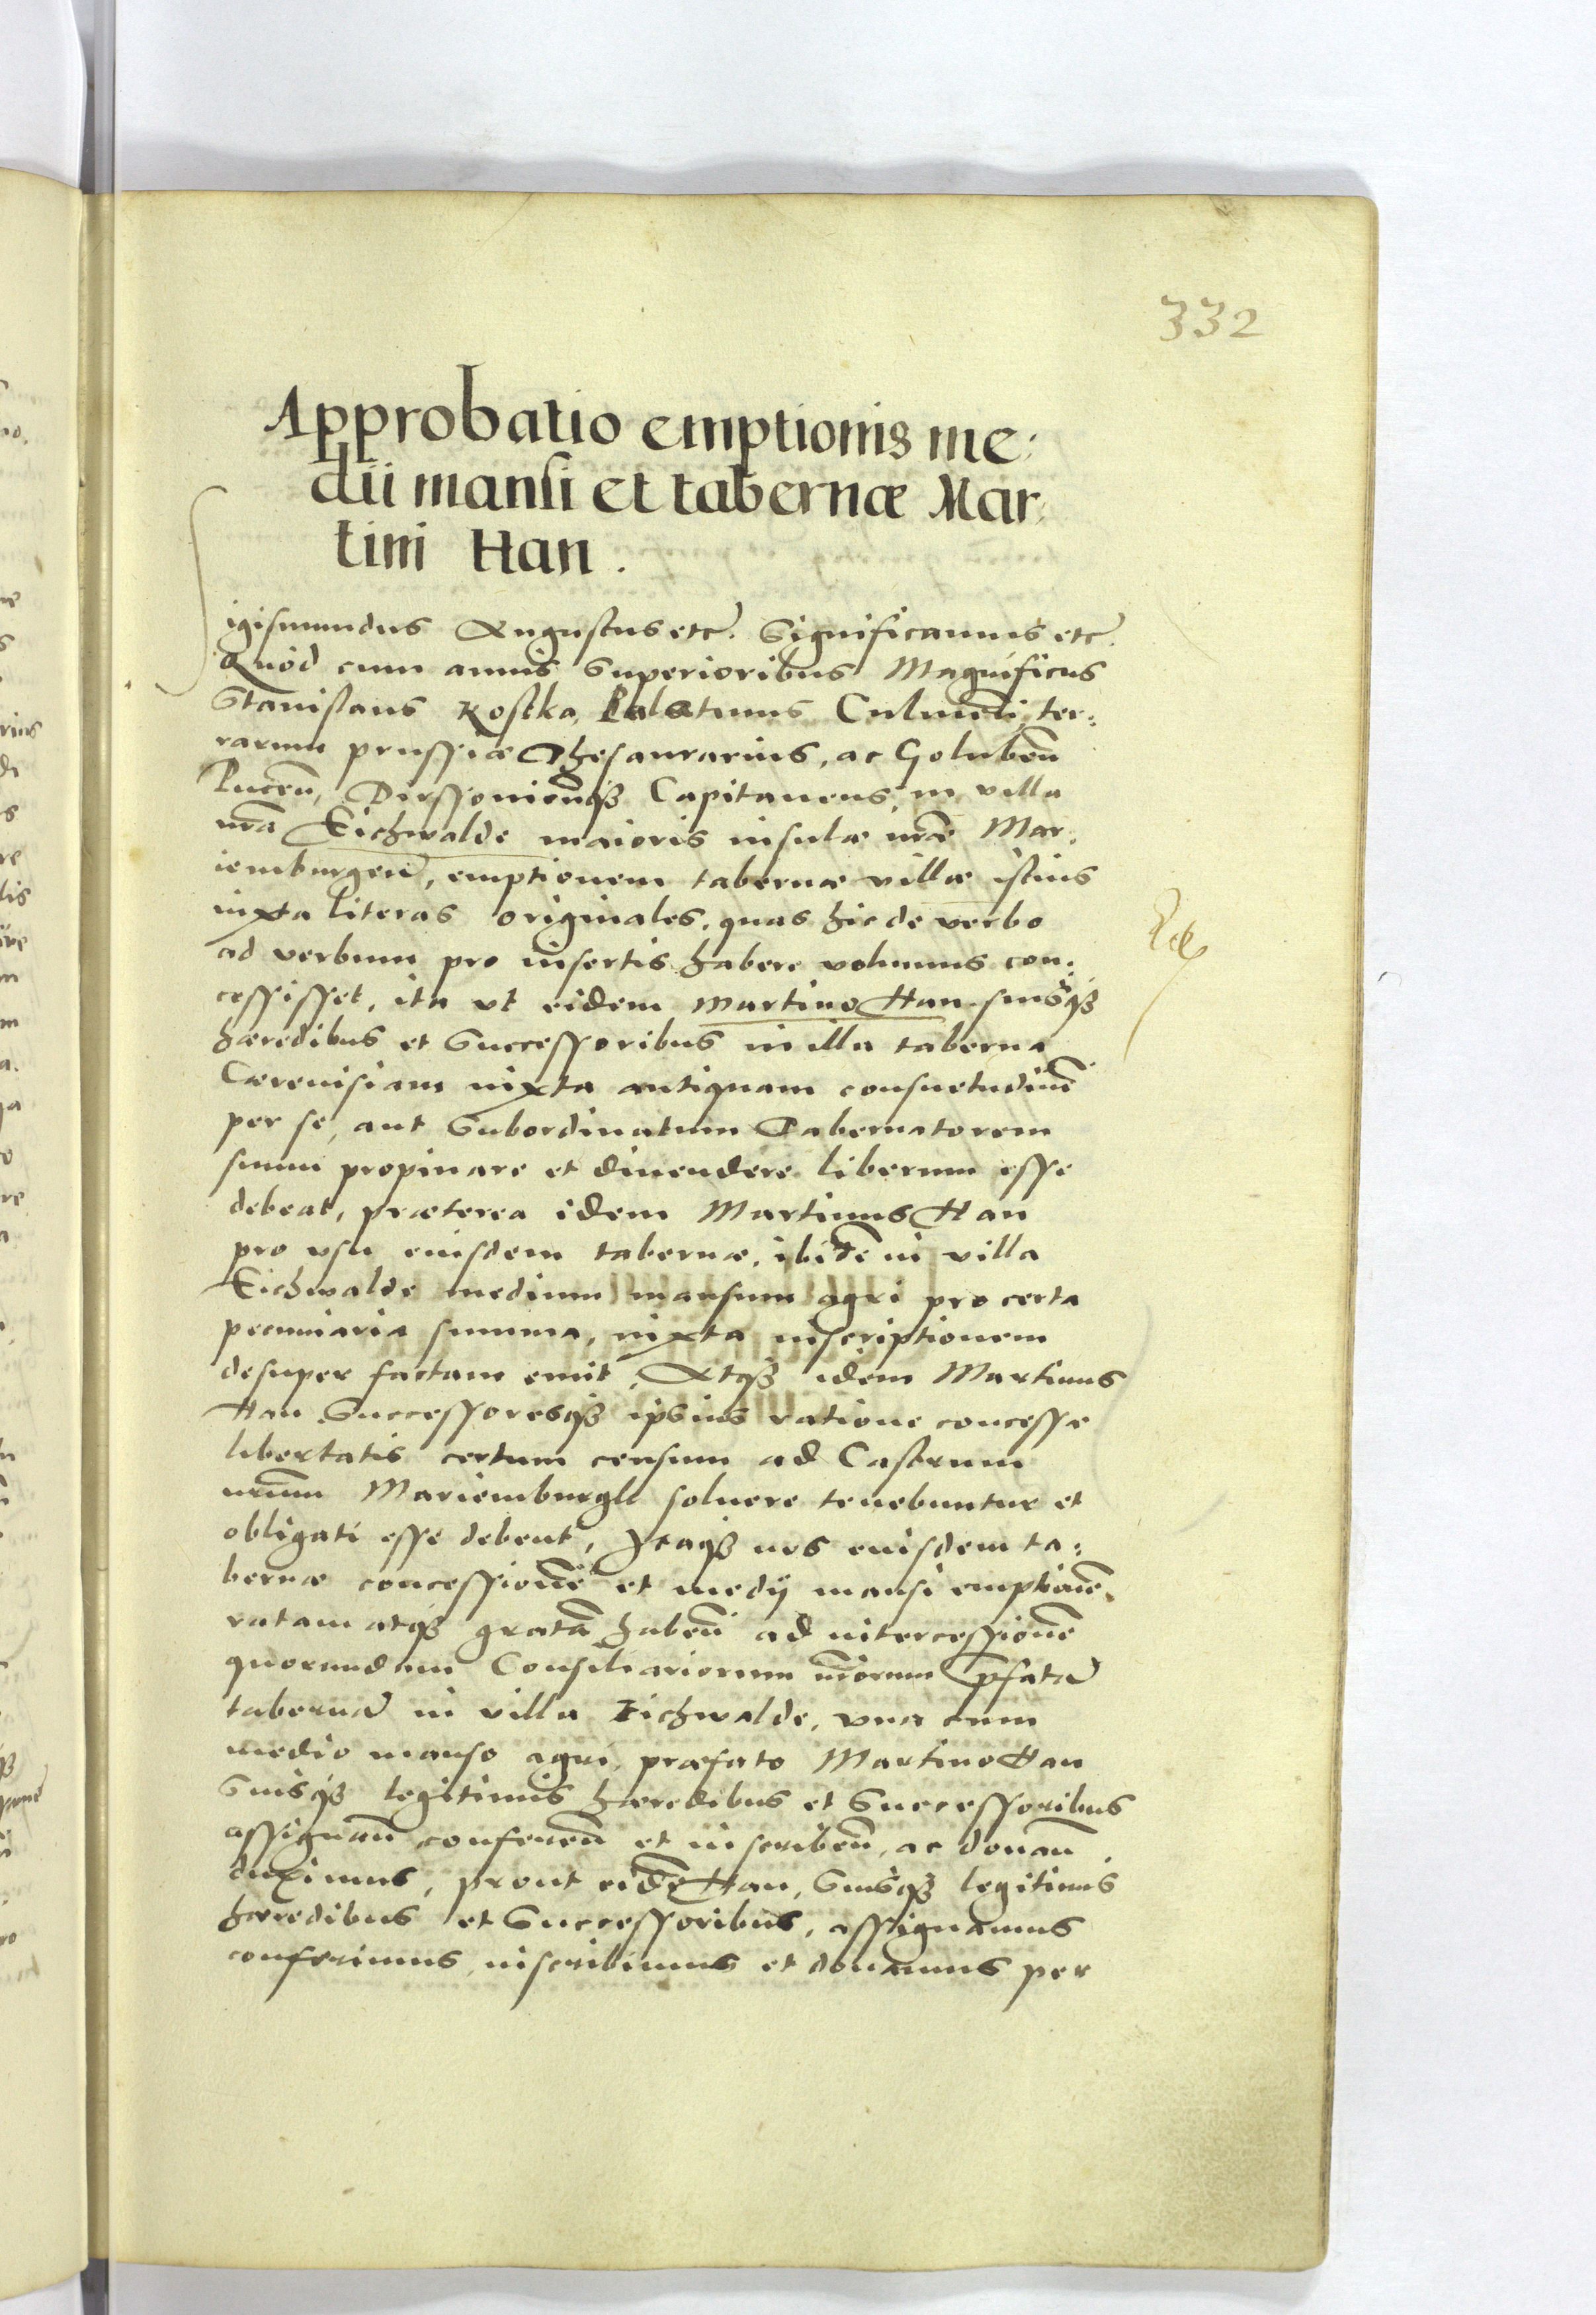 332
Approbatio emptionis me:
dii mansi et tabernæ Mar:
tini Han.
Sigismundus Augustus etc. Significamus etc.
Quod cum annis superioribus Magnificus
Stanislaus Kostka, Palatinus Culmeñ, ter:
rarum prussiæ Thesaurarius, ac Golubeñ
Puceñ, Dirssouieñqꝫ Capitaneus, in villa
nrã Eichwalde maioris insulæ nrãe Mar:
iemburgeñ, emptionem tabernæ villæ istius
iuxta literas originales, quas hic de verbo
ad verbum pro insertis habere volumus con:
cessisset, ita vt eidem Martino Han suisqꝫ
hæredibus et Successoribus in illa taberna
Cæreuisiam iuxta antiquam consuetudinẽ
per se, aut Subordinatum Tabernatorem
suum propinare et diuendere liberum esse
debeat, præterea idem Martinus Han
pro vsu eiusdem tabernæ, ibidẽ in villa
Eichwalde medium mansum agri pro certa
pecuniaria summa, iuxta inscriptionem
desuper factam emit, Atqꝫ idem Martinus
Han Successoresqꝫ ipsius ratione concessæ
libertatis certum censum ad Castrum
nrũm Mariemburgk soluere tenebuntur et
obligati esse debent, Itaqꝫ nos eiusdem ta:
bernæ concessionẽ et medij mansi emptionẽ
ratam atqꝫ gratã habeñ ad intercessionẽ
quorundam Consiliariorum nrõrum p̃fatã
tabernã in villa Eichwalde, vna cum
medio manso agri, præfato Martino Han
Suisqꝫ legitimis hæredibus et Successoribus
assignañ confereñ et inscribeñ, ac donañ
duximus, prout eidẽ Han, Suisqꝫ legitimis
hæredibus et Successoribus, assignamus
conferimus, inscribimus et donamus per